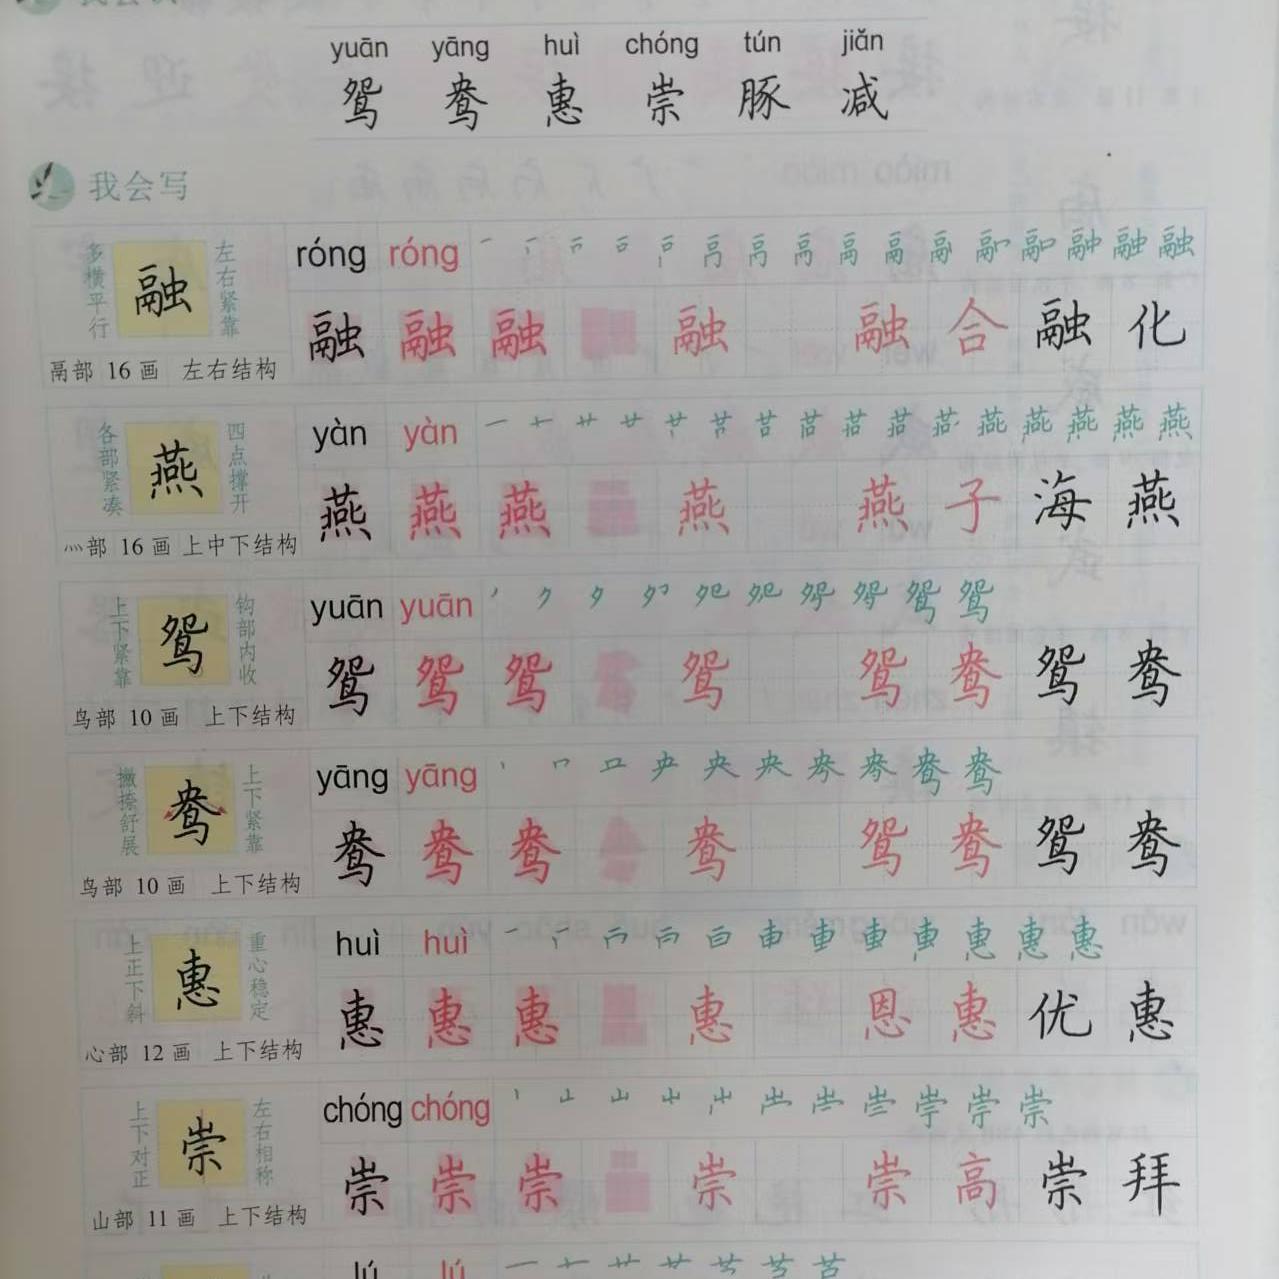 yuān yāng huì chóng tún jiǎn
鸳 鸯 惠 崇 豚 减
我会写
多横平行 融 左右紧靠
鬲部 16画 左右结构
róng róng
融 融 融 融 融 合 融 化
各部紧凑 燕 四点撑开
灬部 16画 上中下结构
yàn yàn
燕 燕 燕 燕 燕 子 海 燕
上下紧靠 鸳 钩部内收
鸟部 10画 上下结构
yuān yuān
鸳 鸳 鸳 鸳 鸳 鸯 鸳 鸯
撇捺舒展 鸯 上下紧靠
鸟部 10画 上下结构
yāng yāng
鸯 鸯 鸯 鸯 鸳 鸯 鸳 鸯
上正下斜 惠 重心稳定
心部 12画 上下结构
huì huì
惠 惠 惠 惠 恩 惠 优 惠
上下对正 崇 左右相称
山部 11画 上下结构
chóng chóng
崇 崇 崇 崇 崇 高 崇 拜
lú lú